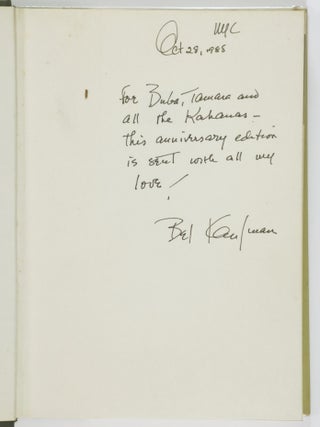 NYC
Oct 28, 1985
For Buba, Tamara and
all the Kahanas —
this anniversary edition
is sent with all my
love!
Bel Kaufman